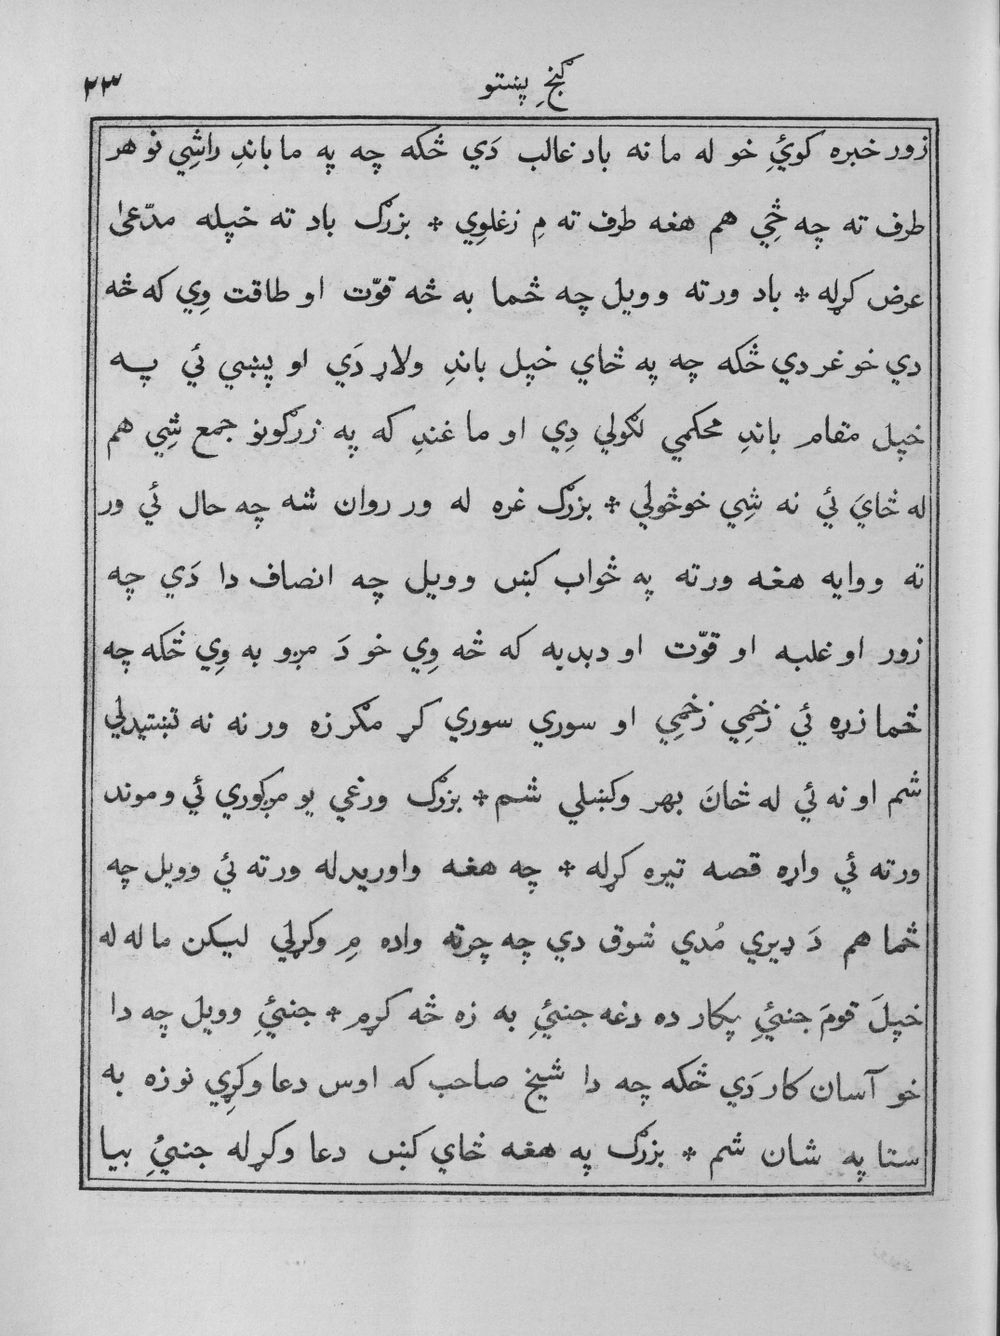 گنجِ پښتو ۲۳
زور خبره کوئِي خو له ما نه باد غالب دَي څکه چه په ما باندِ راشِي نو هر
طرف ته چه ځِي هم هغه طرف ته مِ زغلوِي * بزرګ باد ته خپله مدّعیٰ
عرض کړله * باد ورته وويل چه څما به څه قوّت او طاقت وِي که څه
دي خو غر دي څکه چه په ځاي خپل باندِ ولاړ دَي او پښي ئي په
خپل مقام باندِ محکمي لګولي دِي او ما غندِ که په زرګونو جمع شِي هم
له ځايَ ئي نه شِي خوځولي * بزرګ غره له ور روان شه چه حال ئي ور
ته ووايه هغه ورته په ځواب کښں وويل چه انصاف دا دَي چه
زور او غلبه او قوّت او دبدبه که څه وِي خو دَ مږو به وِي ځکه چه
څما زړه ئي زخمِي زخمِي او سوري سوري کړ مګر زه ور نه نه تښتيدلي
شم او نه ئي له ځانَ بهر وکښلي شم * بزرګ ورغي يو مږکوري ئي وموند
ورته ئي واړه قصه تيره کړله * چه هغه واوريدله ورته ئي وويل چه
څما هم دَ ډيري مُدي شوق دي چه چرته واده مِ وکړلي ليکن ما له له
خپلَ قومَ جنئيِ پکار ده دغه جنئيِ به زه څه کړم * جنئيِ وويل چه دا
خو آسان کار دَي څکه چه دا شيخ صاحب که اوس دعا وکړِي نو زه به
ستا په شان شم * بزرګ په هغه ځاي کښں دعا وکړله جنئيِ بيا